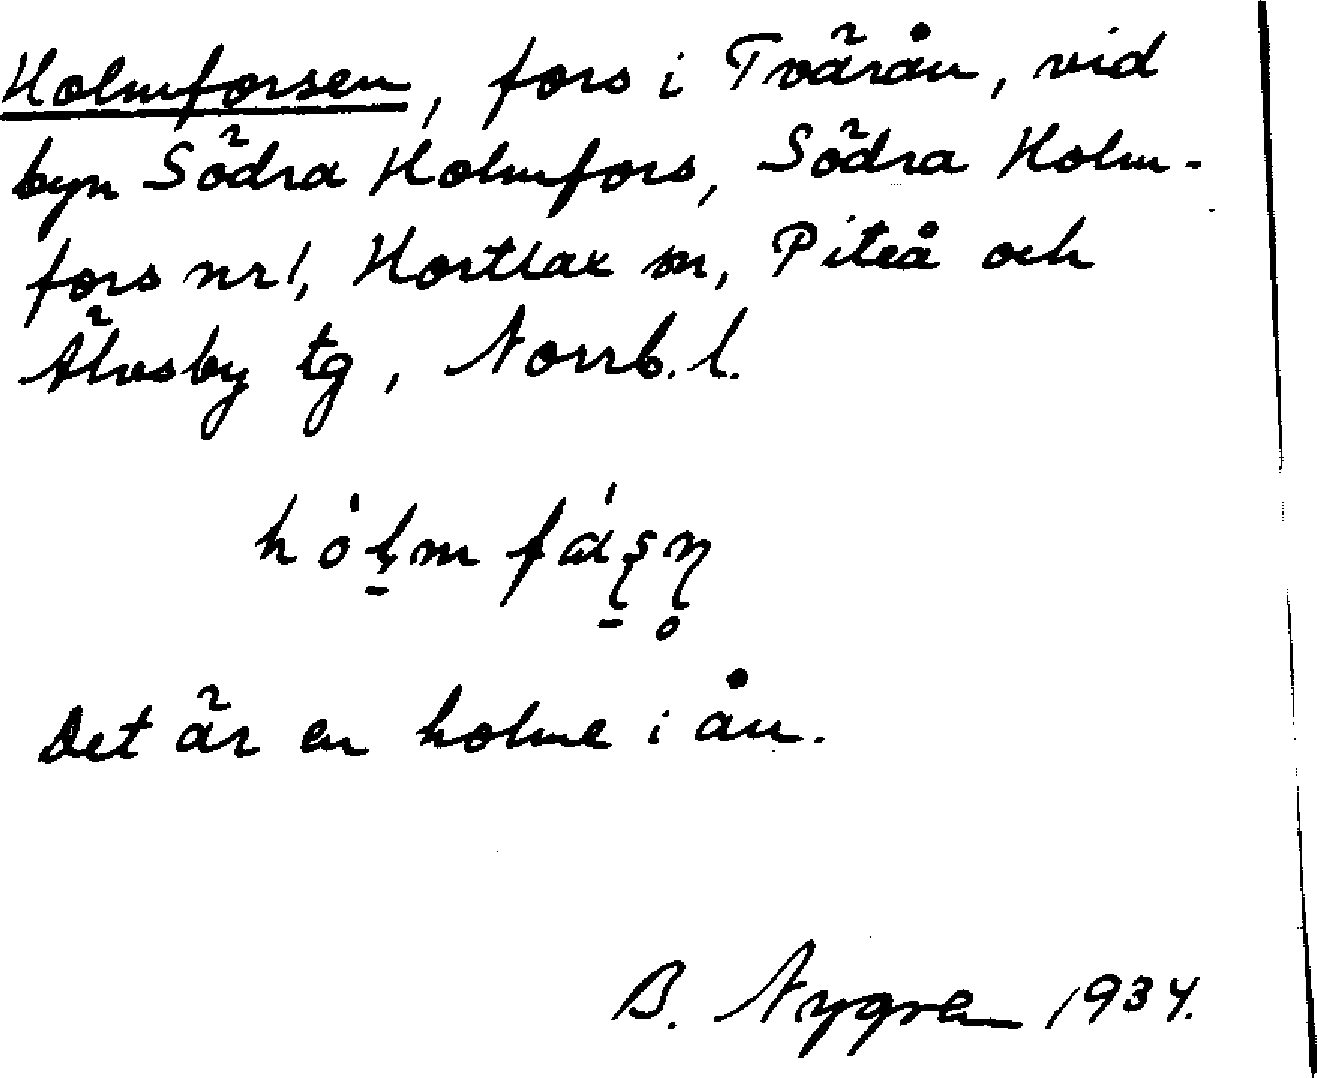 Holmforsen, fors i Tvärån, vid
byn Södra Holmfors, Södra Holm-
fors nr 1, Hortlax sn, Piteå och
Älvsby tg, Norrb. l.
Det är en holme i ån.
B. Nygren 1934.